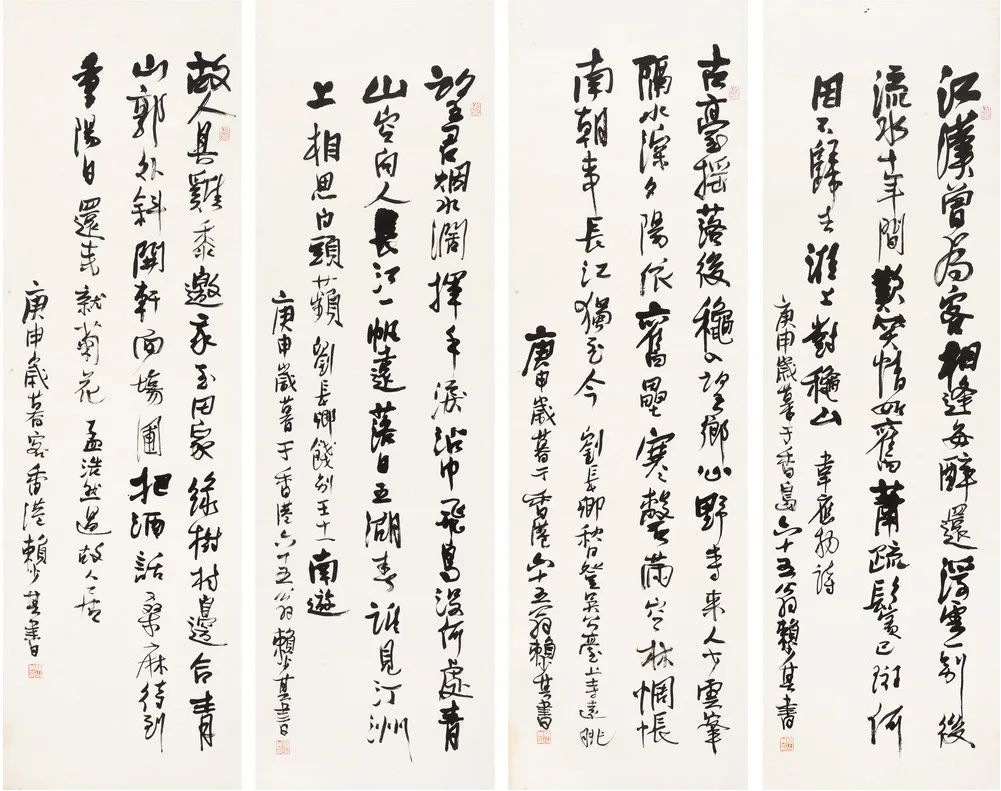 江漢曾為客相逢每醉還浮雲一別後
流水十年間歡笑情如舊蕭疏鬢已斑何
因不歸去淮上對秋山 韋應物詩
庚申歲暮于香島六十五翁賴少其書
古臺搖落後秋入望鄉心野寺來人少雲峯
隔水深夕陽依舊壘寒磬滿空林惆悵
南朝事長江獨至今 劉長卿秋日登吳公臺上寺遠眺
庚申歲暮于香港六十五翁賴少其書
望君烟水濶揮手淚沾巾飛鳥沒何處青
山空向人長江一帆遠落日五湖春誰見汀洲
上相思白頭蘋 劉長卿餞別王十一南遊
庚申歲暮于香港六十五翁賴少其書
故人具雞黍邀我至田家綠樹村邊合青
山郭外斜開軒面場圃把酒話桑麻待到
重陽日還來就菊花 孟浩然過故人莊
庚申歲暮客香港賴少其書